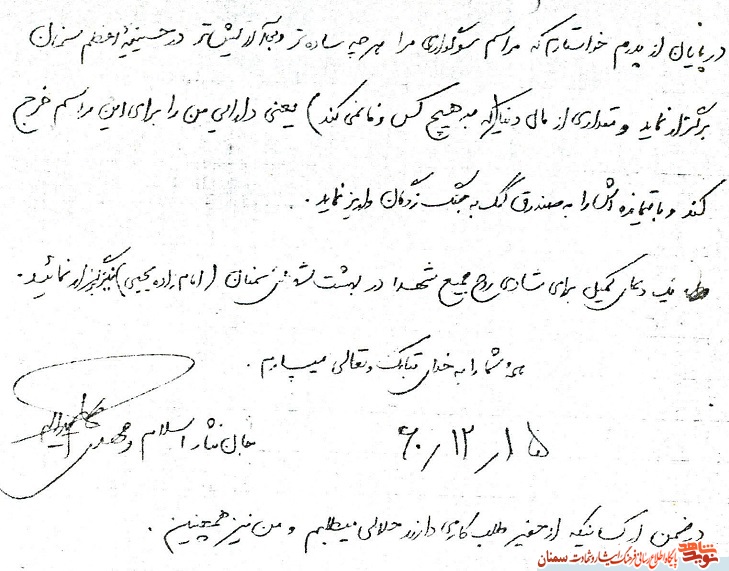 در پایان از پدرم خواستارم که مراسم سوگواری مرا هر چه ساده تر و در حسینیه اعظم سمنان
برگزار نماید و مقداری از مال دنیا (که به هیچ کس وفا نمی کند) یعنی دارایی من را برای این مراسم خرج
کند و باقیمانده اش را به صندوق کمک به جنگ زدگان واریز نماید.
یک دعای کمیل برای شادی روح جمیع شهدا در بهشت سمنان (امام زاده یحیی) نیز برگزار نمائید.
همه شما را به خدای تبارک و تعالی میسپارم.
جان نثار اسلام و مهدی
۶۰/۱۲/۱۵
در ضمن از کسانیکه از حقیر طلب کارند حلالی میطلبم و من نیز همچنین.
نوید شاهد
پایگاه اطلاع رسانی فرهنگ ایثار و شهادت سمنان